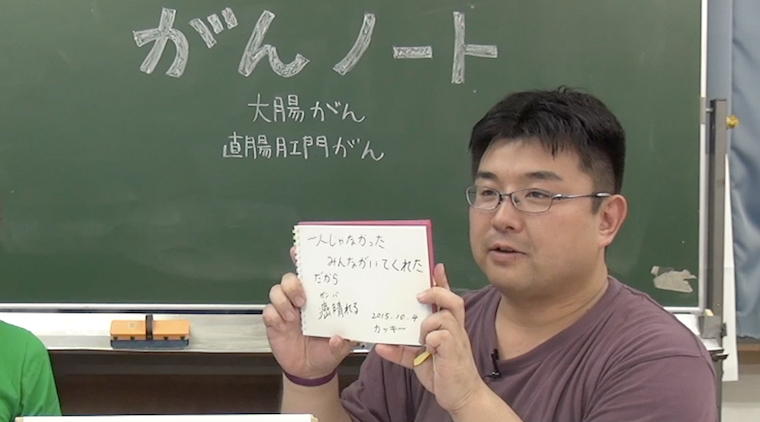 がんノート
大腸がん
直腸肛門がん
一人じゃなかった
みんながいてくれた
だから
ガンバ
癌晴れる
2015.10.4
カッキー